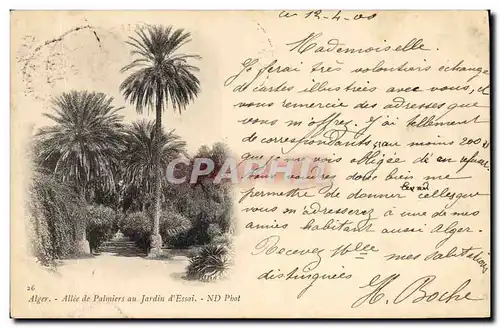 Ce 12-4-00
Mademoiselle.
Je ferai très volontiers échange
de cartes illustrées avec vous, et
vous remercie des adresses que
vous m'offrez. J'ai tellement
de correspondants, (au moins 200)
que je me vois obligée d'en
vous serez donc bien
permettre de donner celles que
vous m'adresserez à une de mes
amies habitant aussi Alger.
Recevez Mlle mes salutations
distinguées
H. Boche
CPAPHIL
26
Alger. - Allée de Palmiers au Jardin d'Essai. - ND Phot